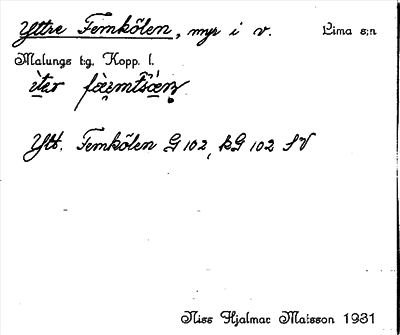 Yttre Femkölen, myr i v. Lima s:n
Malungs t:g. Kopp. l.
Ytt. Femkölen G 102, kG 102 SV
Niss Hjalmar Matsson 1931